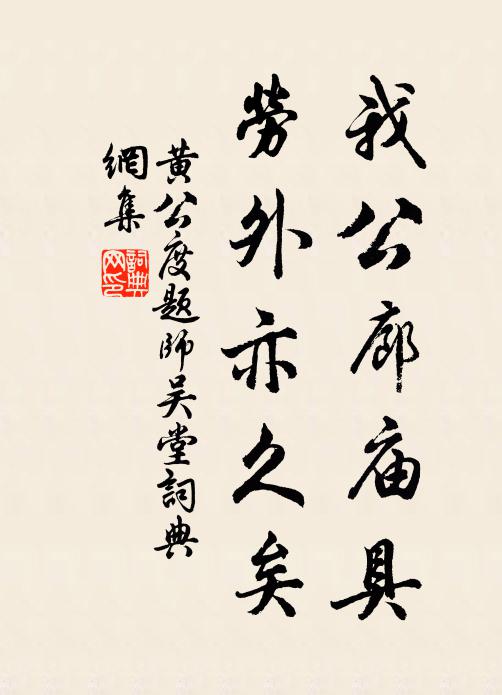 我公廊庙具
勞外亦久矣
黄公度题師吴堂詞典
網集
詞典网印